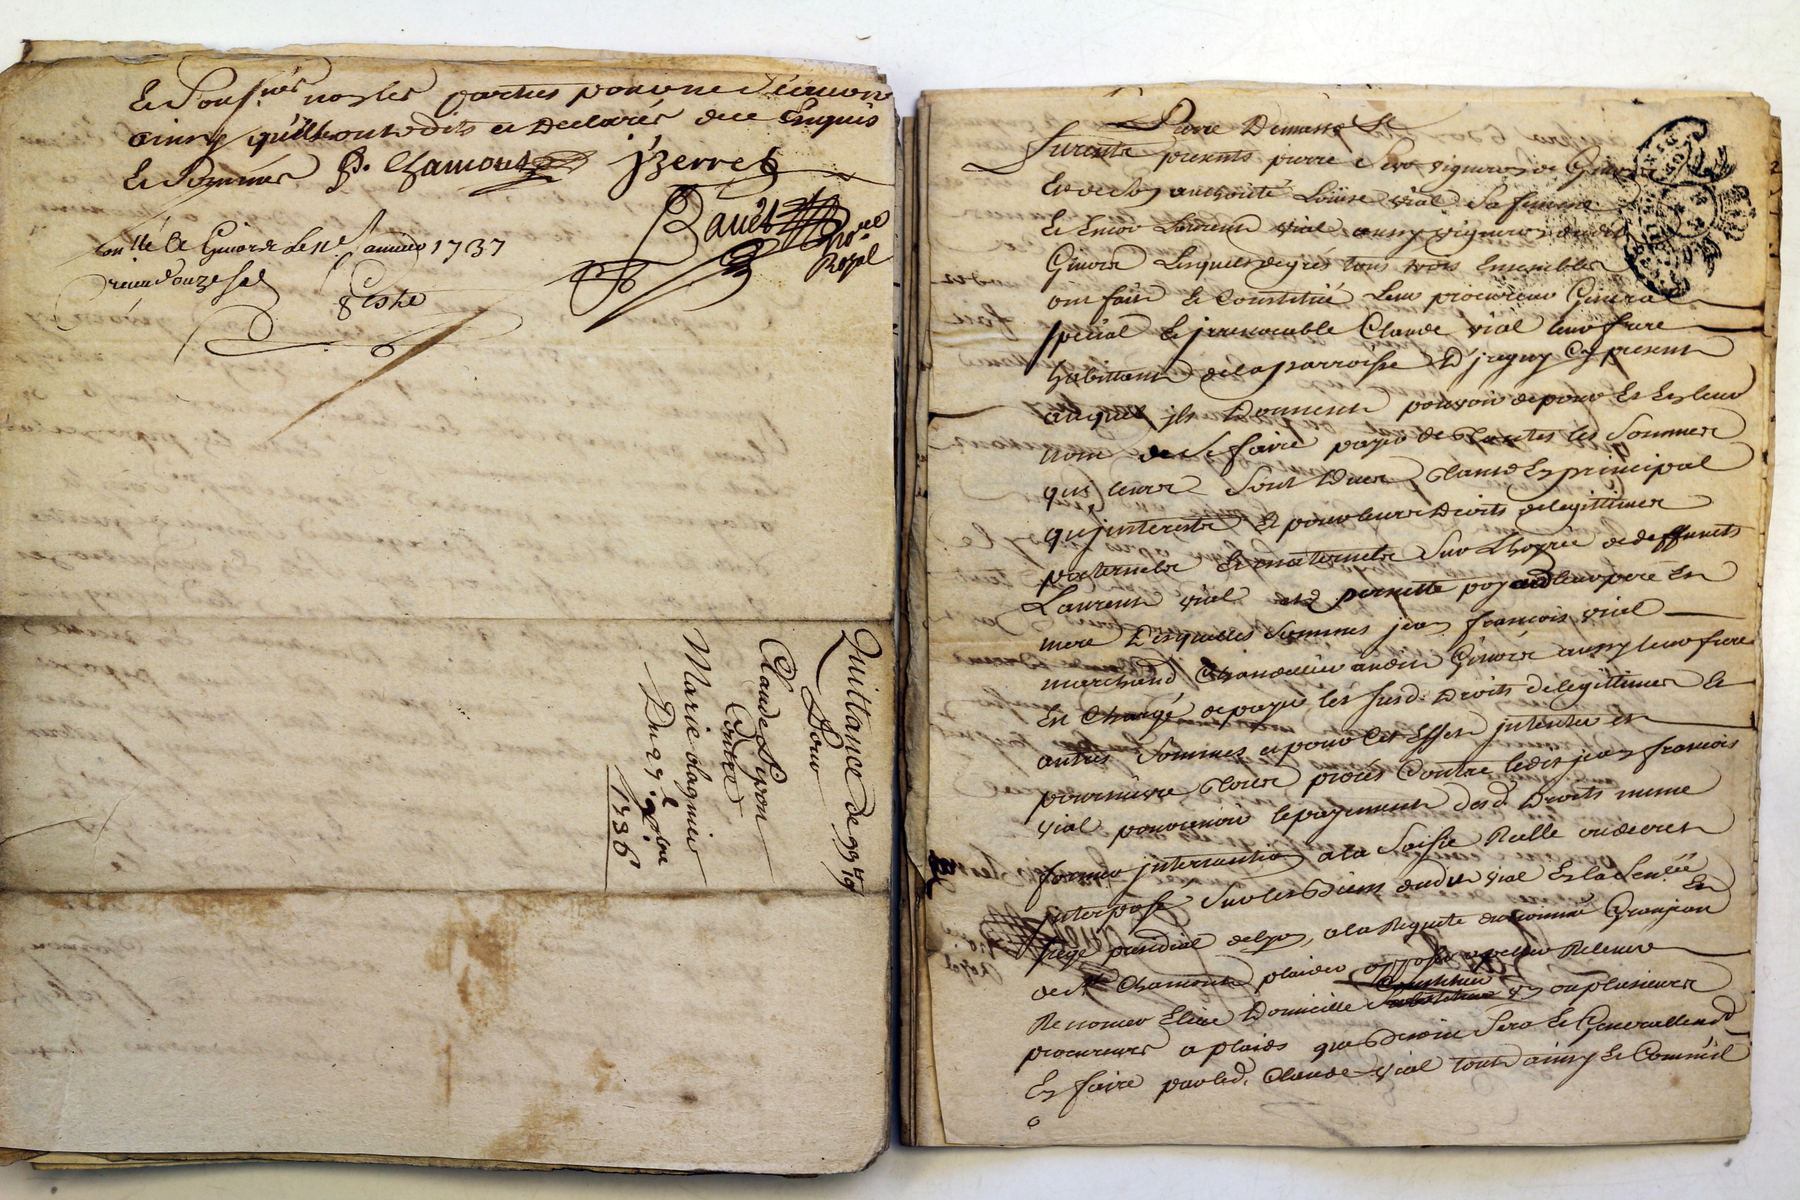 et soussignés non les parties pour ne sçavoir
ainsy qu'elles ont dits et declarés de ce Enquis
et sommés P. Chamont jZerret
Bavet No.rel
Royal
Conllé a Givors le 11e Janvier 1737
Reçu douze sols
Quittance de 99 lt 19
Pour
Claude Pipon
Contre
Marie olagnier
Du 27e 9bre
1736
Pierre Dumas
Furent presents pierre vigneron de Givors
Et de son authorité Loüise vial sa femme
Et Encor Laurent vial aussy vigneron dudit
Givors Lesquels de grés tous trois Ensembles
ont fait et Constitué leur procureur General
special et jrrevocable Claude vial leur frere
habittant de la parroisse D'jrigny Cy present
auquel jls Donnent pouvoir de pour Et En leur
nom de se faire payer de toutes les Sommes
qui leurs sont Dues tant En principal
qu'jnterests Et pour leurs Droits de legittimes
paternels Et maternels sur L'hoyrie de deffunts
Laurent vial et pernette poyard leur pere Et
mere Desquelles sommes jean françois vial
marchand Chandellier audit Givors aussy leur frere
Est Chargé de payer les susd. Droits de legittimes Et
autres sommes et pour Cet Effet jntenter et
poursuivre tous procés Contre ledit jean françois
vial pour avoir le payement desd. Droits meme
former jntervention a la Saisie Réelle ou decret
jnterposé sur les Biens dudit vial En la Senée Et
siege presidial de Lyon, a la Requete du nommé Granjean
de St. Chamont plaider opposer appeller Relever
Renoncer Elire Domicille Constituer un ou plusieurs
procureurs a plaids que Besoin Sera Et Generallement
En faire par led. Claude vial tout ainsy Et Comme jl